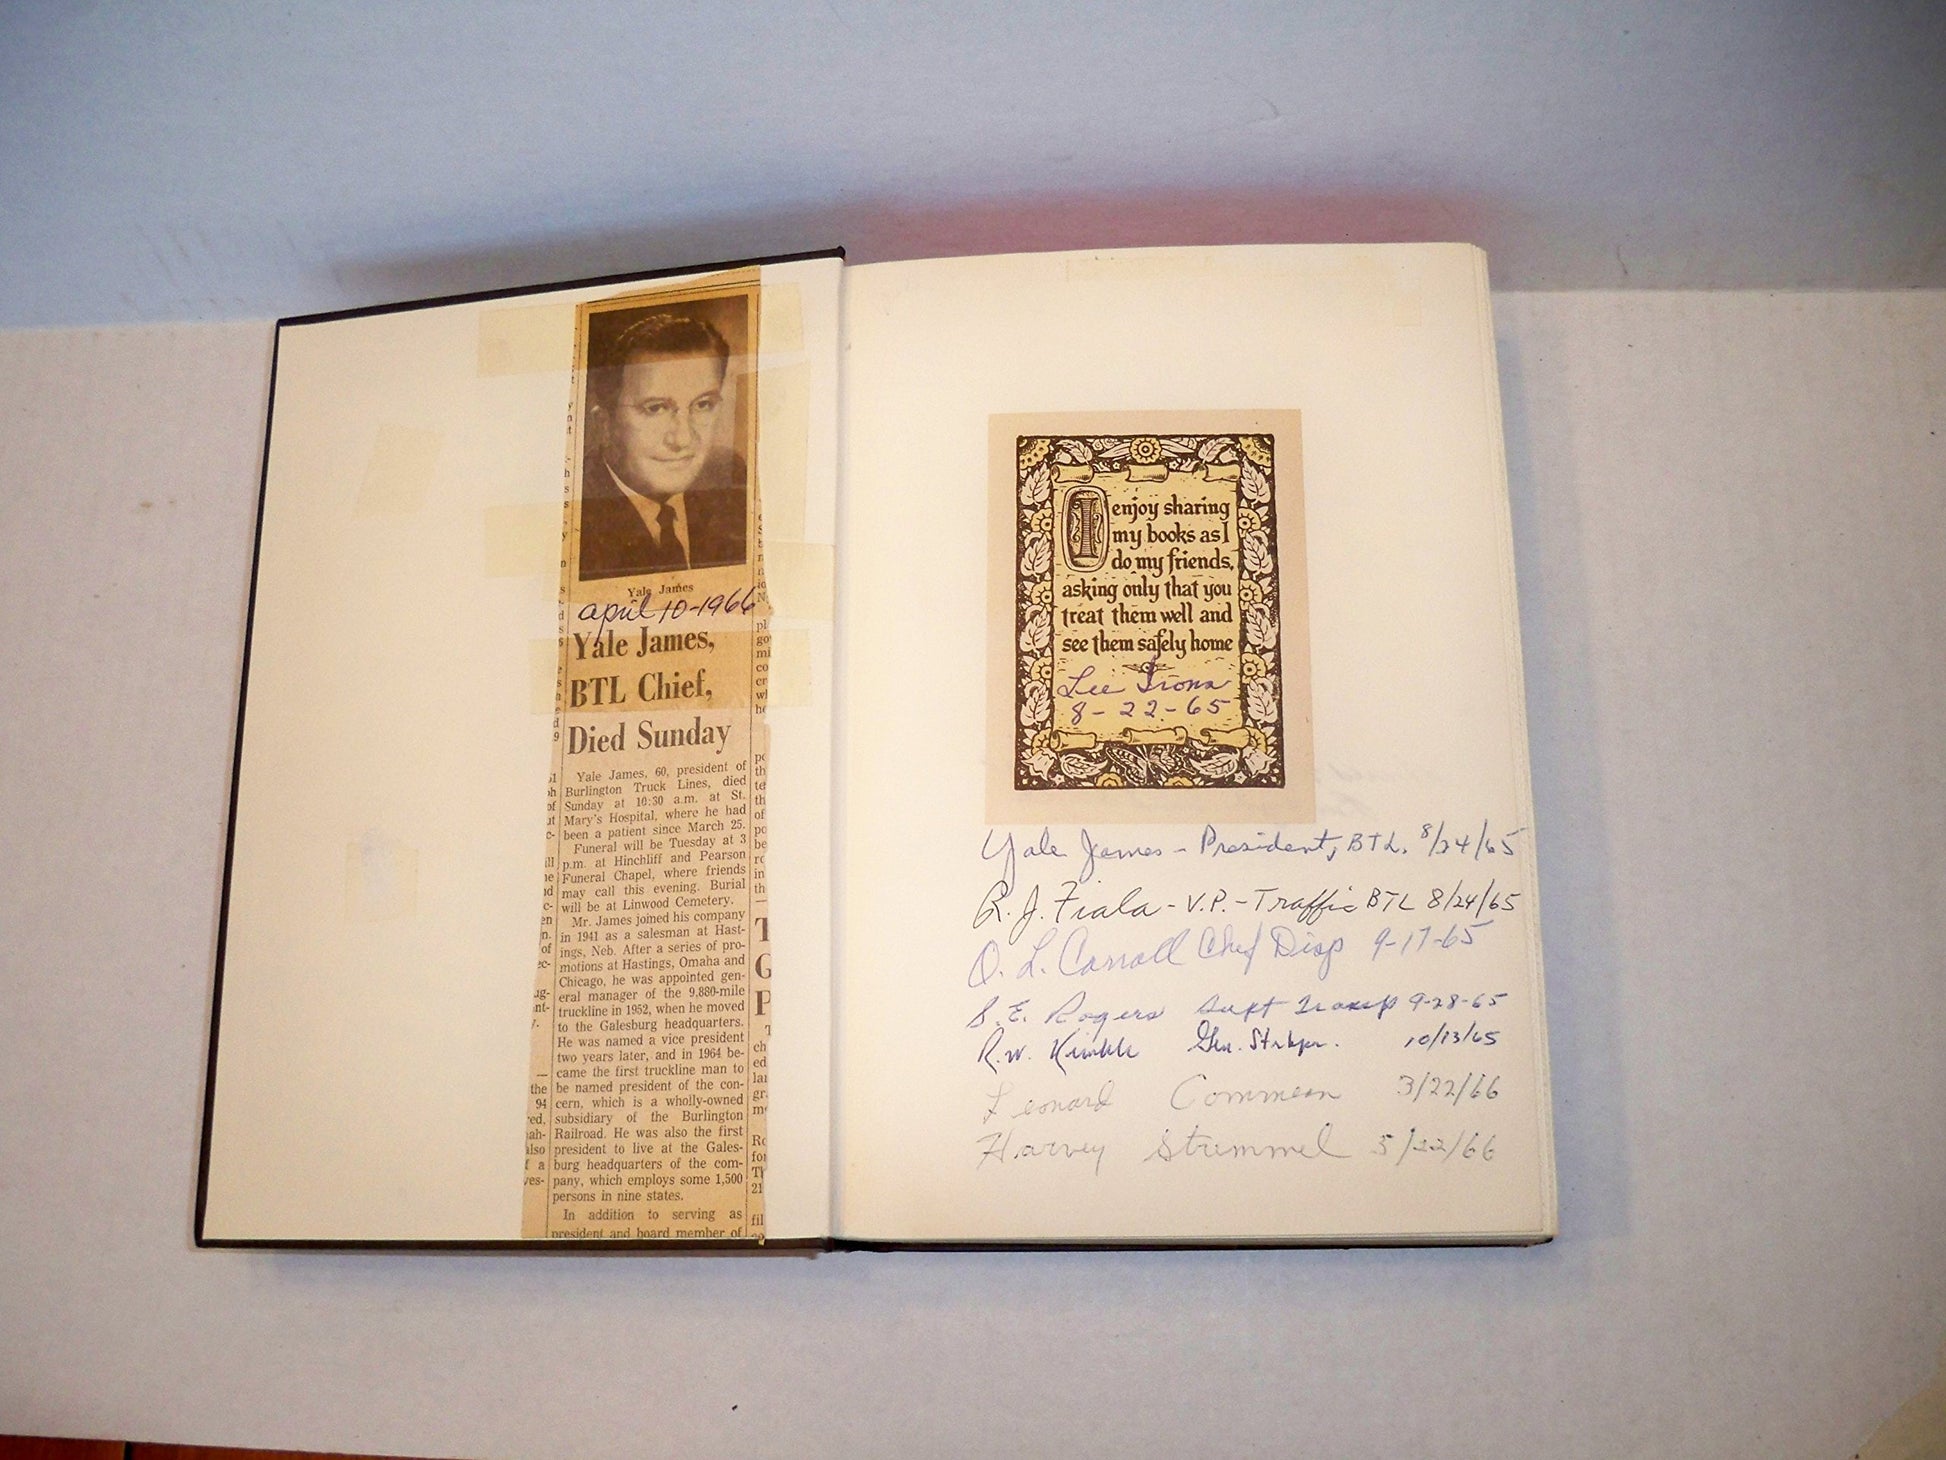 Yale James
april 10-1966
Yale James,
BTL Chief,
Died Sunday
Yale James, 60, president of
Burlington Truck Lines, died
Sunday at 10:30 a.m. at St.
Mary's Hospital, where he had
been a patient since March 25.
Funeral will be Tuesday at 3
p.m. at Hinchliff and Pearson
Funeral Chapel, where friends
may call this evening. Burial
will be at Linwood Cemetery.
Mr. James joined his company
in 1941 as a salesman at Hast-
ings, Neb. After a series of pro-
motions at Hastings, Omaha and
Chicago, he was appointed gen-
eral manager of the 9,880-mile
truckline in 1952, when he moved
to the Galesburg headquarters.
He was named a vice president
two years later, and in 1964 be-
came the first truckline man to
be named president of the con-
cern, which is a wholly-owned
subsidiary of the Burlington
Railroad. He was also the first
president to live at the Gales-
burg headquarters of the com-
pany, which employs some 1,500
persons in nine states.
In addition to serving as
president and board member of
I enjoy sharing
my books as I
do my friends,
asking only that you
treat them well and
see them safely home
Lee
8-22-65
Yale James - President, BTL. 8/24/65
R. J. Fiala - V.P. - Traffic BTL 8/24/65
O. L. Carroll Chef Disp 9-17-65
S. E. Rogers Supt Transp 9-28-65
R.W. Kimble Gen. Strkpr. 10/13/65
Leonard Commean 3/22/66
Harvey Strummel 5/22/66